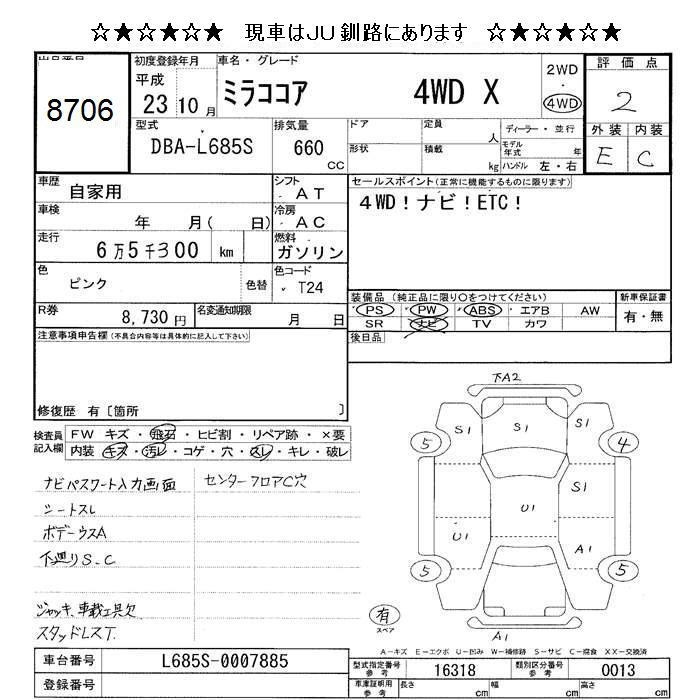 ☆★☆★☆★ 現車はＪＵ釧路にあります ☆★☆★☆★
出品番号
8706
初度登録年月
平成
23 10 月
車名・グレード
ミラココア 4WD X
2WD
・
4WD
評価点
2
外装 内装
E C
型式
DBA-L685S
排気量
660
CC
ドア
形状
定員
人
積載
kg
ディーラー・並行
モデル年式 年
ハンドル 左・右
車歴
自家用
シフト
AT
セールスポイント(正常に機能するものに限ります)
4WD！ナビ！ETC！
車検
年 月( 日)
冷房
AC
走行
6万5千300 km
燃料
ガソリン
色
ピンク
色替
色コード
T24
R券
8,730円
名変通知期限
月 日
装備品(純正品に限り○をつけてください)
PS ・PW ・ABS ・エアB AW
SR ナビ TV カワ
新車保証書
有・無
後日品
注意事項申告欄(不具合内容等は具体的に記入して下さい)
修復歴 有〔箇所 〕
検査員記入欄
FW キズ・飛石・ヒビ割・リペア跡・×要
内装 キズ・汚レ・コゲ・穴・スレ・キレ・破レ
ナビパスワード入力画面 センターフロアC穴
シートスレ
ボデーウスA
下廻りS.C
ジャッキ、車載工具欠
スタッドレスT.
下A2
S1 S1 S1
5 4
S1
U1
U1 A1
5 5
有
スペア
A1
A−キズ E−エクボ U−凹み W−補修跡 S−サビ C−腐食 XX−交換済
車台番号 L685S-0007885
登録番号
型式指定番号 参考 16318 類別区分番号 参考 0013
車庫証明用 参考 長さ cm 幅 cm 高さ cm